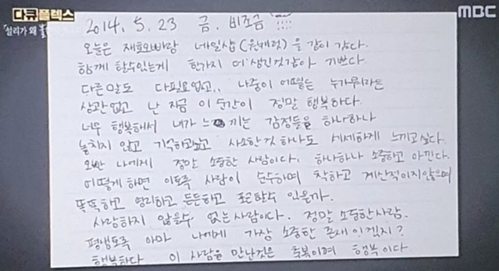 다큐플렉스
"설리가 왜 불
MBC
2014. 5. 23 금. 비조금
오늘은 재효오빠랑 네일샵 을 같이 갔다.
함께 할수있는게 한가지 더 생긴것같아 기쁘다
다른말도 다 필요없고.. 나중이 어떻든 누가뭐라든
상관없고 난 지금 이 순간이 정말 행복하다.
너무 행복해서 내가 느끼는 감정들을 하나하나
놓치지 않고 기억하고싶고 사소한것 하나도 세세하게 느끼고싶다.
오빤 나에게 정말 소중한 사람이다. 하나하나 소중하고 아낀다.
어떻게 하면 이토록 사람이 순수하며 착하고 계산적이지않으며
똑똑하고 영리하고 든든하고 표현할수 있을까.
사랑하지 않을수 없는사람이다. 정말 소중한사람.
평생토록 아마 나에게 가장 소중한 존재 이겠지?
행복하다 이 사람을 만난것은 축복이며 행복이다